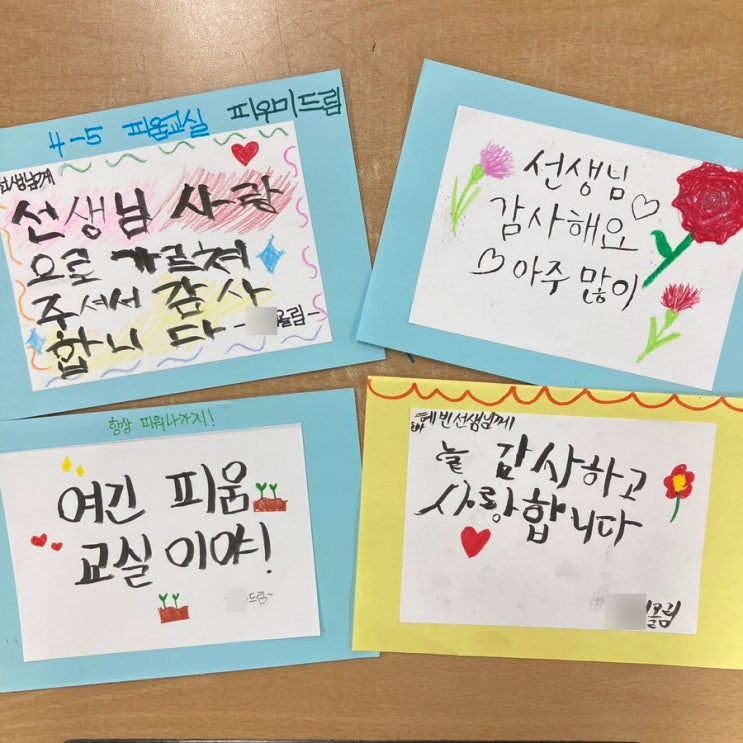 4-5 피움교실 피우미드림
선생님께
선생님 사랑
으로 가르쳐
주셔서 감사
합니다
올림-
선생님
감사해요
아주 많이
항상 피워나가지!
여긴 피움
교실이야!
드림-
혜빈선생님께!
늘 감사하고
사랑합니다
올림